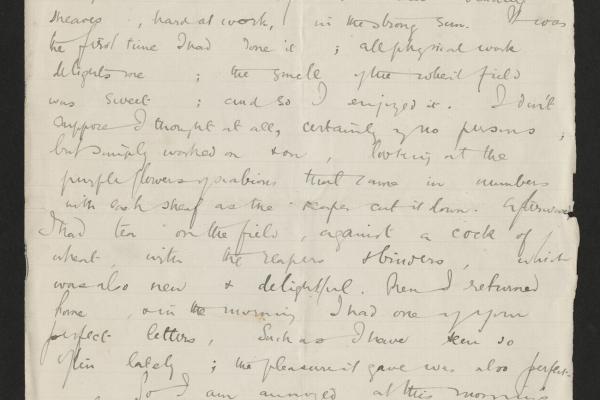 sheaves, hard at work, in the strong sun. It was
the first time I had done it; all physical work
delights me; the smell of the wheat field
was sweet; and so I enjoyed it. I don't
suppose I thought at all, certainly of no persons;
but simply worked on & on, looking at the
purple flowers of scabious that came in numbers
with each sheaf as the reaper cut it down. Afterwards
I had tea on the field, against a cock of
wheat, with the reapers & binders, which
was also new & delightful. Then I returned
home, & in the morning I had one of your
perfect letters, such as I have seen so
often lately; the pleasure it gave was also perfect.
So I am annoyed at this morning